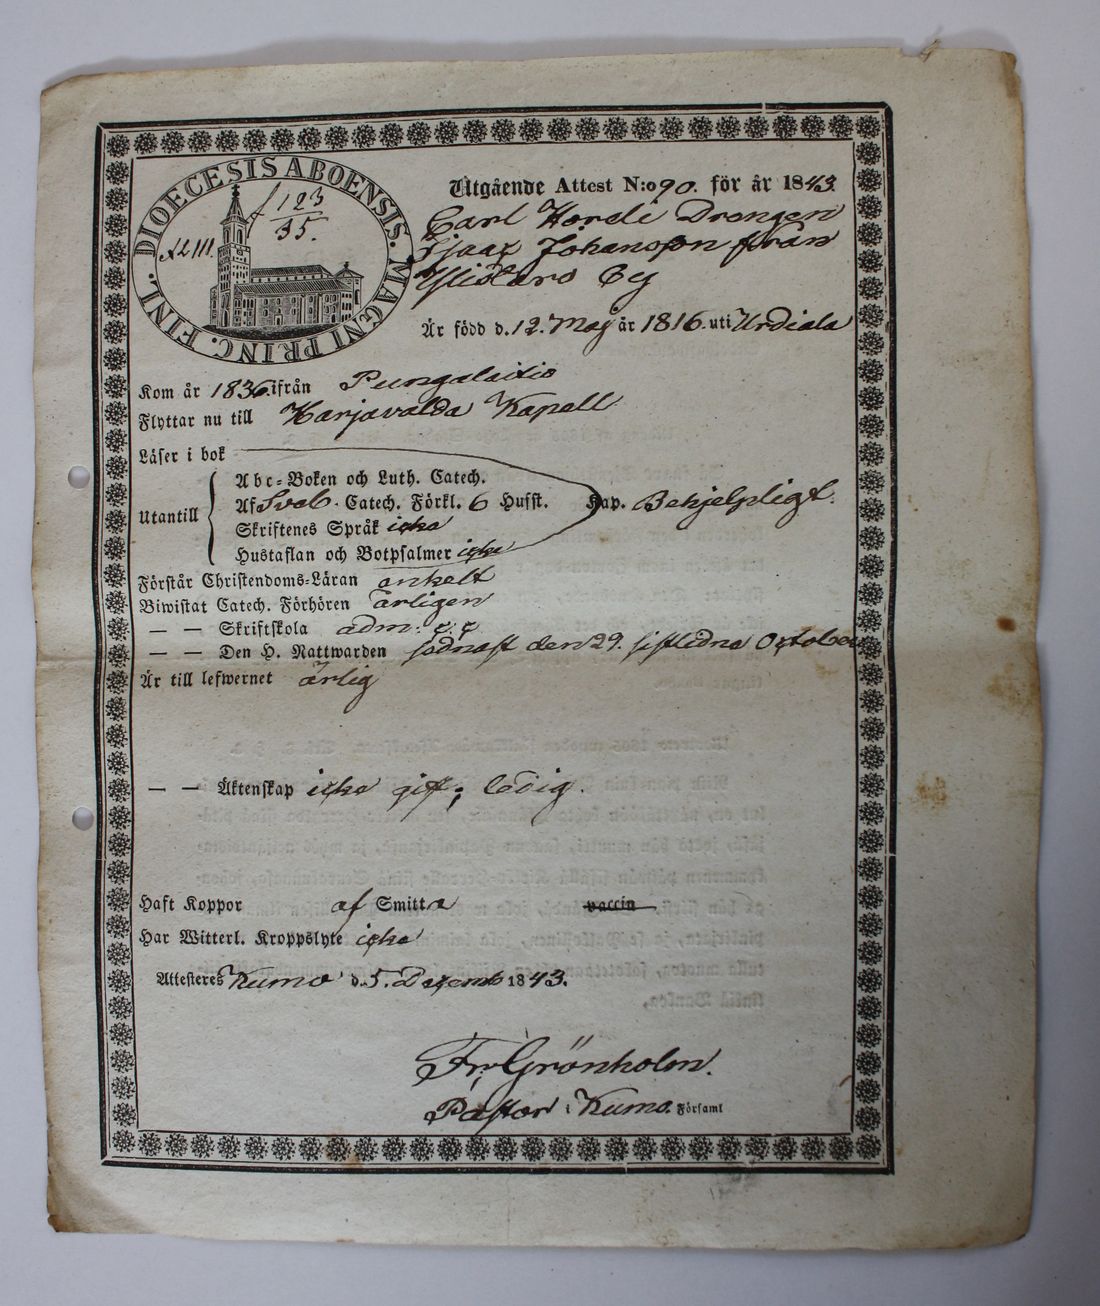 DIOECESIS ABOENSIS. MAGNI PRINC. FINL.
123
35.
Utgående Attest N:o 90. för år 1843.
Carl Hordi Drengen
Isaac Johansson från
by
Är född d. 12. Maj år 1816. uti Urdiala
Kom år 1836. ifrån Pungalaitio
Flyttar nu till Harjavalda Kapell
Läser i bok
Abc-Boken och Luth. Catech.
Utantill Af Sveb. Catech. Förkl. 6 Hufst. Kap. Behjelpligt.
Skriftenes Språk icke
Hustaflan och Botpsalmer icke
Förstår Christendoms-Läran enkelt
Biwistat Catech. Förhören årligen
— — Skriftskola adm.
— — Den H. Nattwarden sednast den 29. sistledne October
Är till lefwernet ärlig
— — Äktenskap icke gift; ledig.
Haft Koppor af Smitta vaccin
Har Witterl. Kroppslyte icke
Attesteres Kumo d. 5. Decemb 1843.
Fr. Grönholm.
Pastor i Kumo. Församl